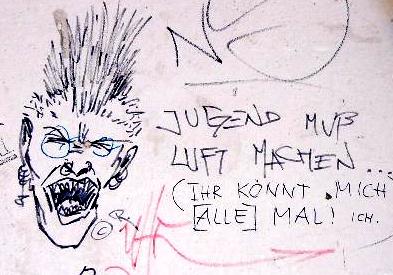 JUGEND MUß
LUFT MACHEN...
(IHR KÖNNT MICH
[ALLE] MAL! ICH.
© R.